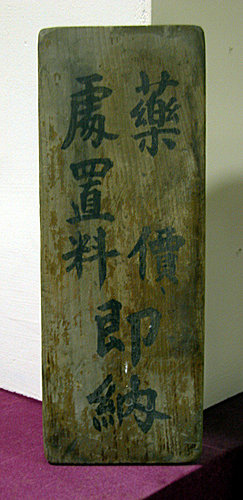 藥價
處置料
即納